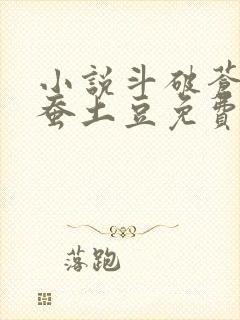 小説斗破蒼
蚕土豆免費
落跑